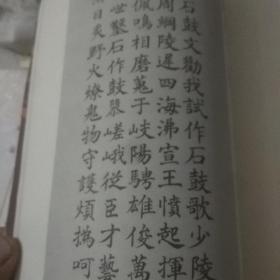 石鼓文勸我試作石鼓歌少陵
周綱陵遲四海沸宣王憤起揮
佩鳴相磨蒐于岐陽騁雄俊萬
世鑿石作鼓隳嵯峨從臣才藝
日炙野火燎鬼物守護煩撝呵